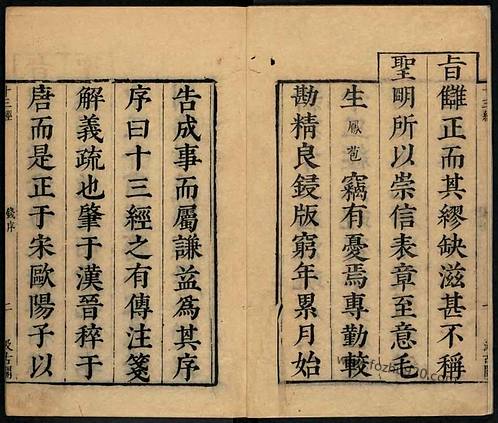 旨讎正而其繆缺滋甚不稱
聖眀所以崇信表章至意毛
生鳳苞竊有憂焉專勤較
勘精良鋟版窮年累月始
告成事而屬謙益為其序
序曰十三經之有傳注箋
解義疏也肇于漢晉稡于
唐而是正于宋歐陽子以
十三經 錢序 二 汲古閣